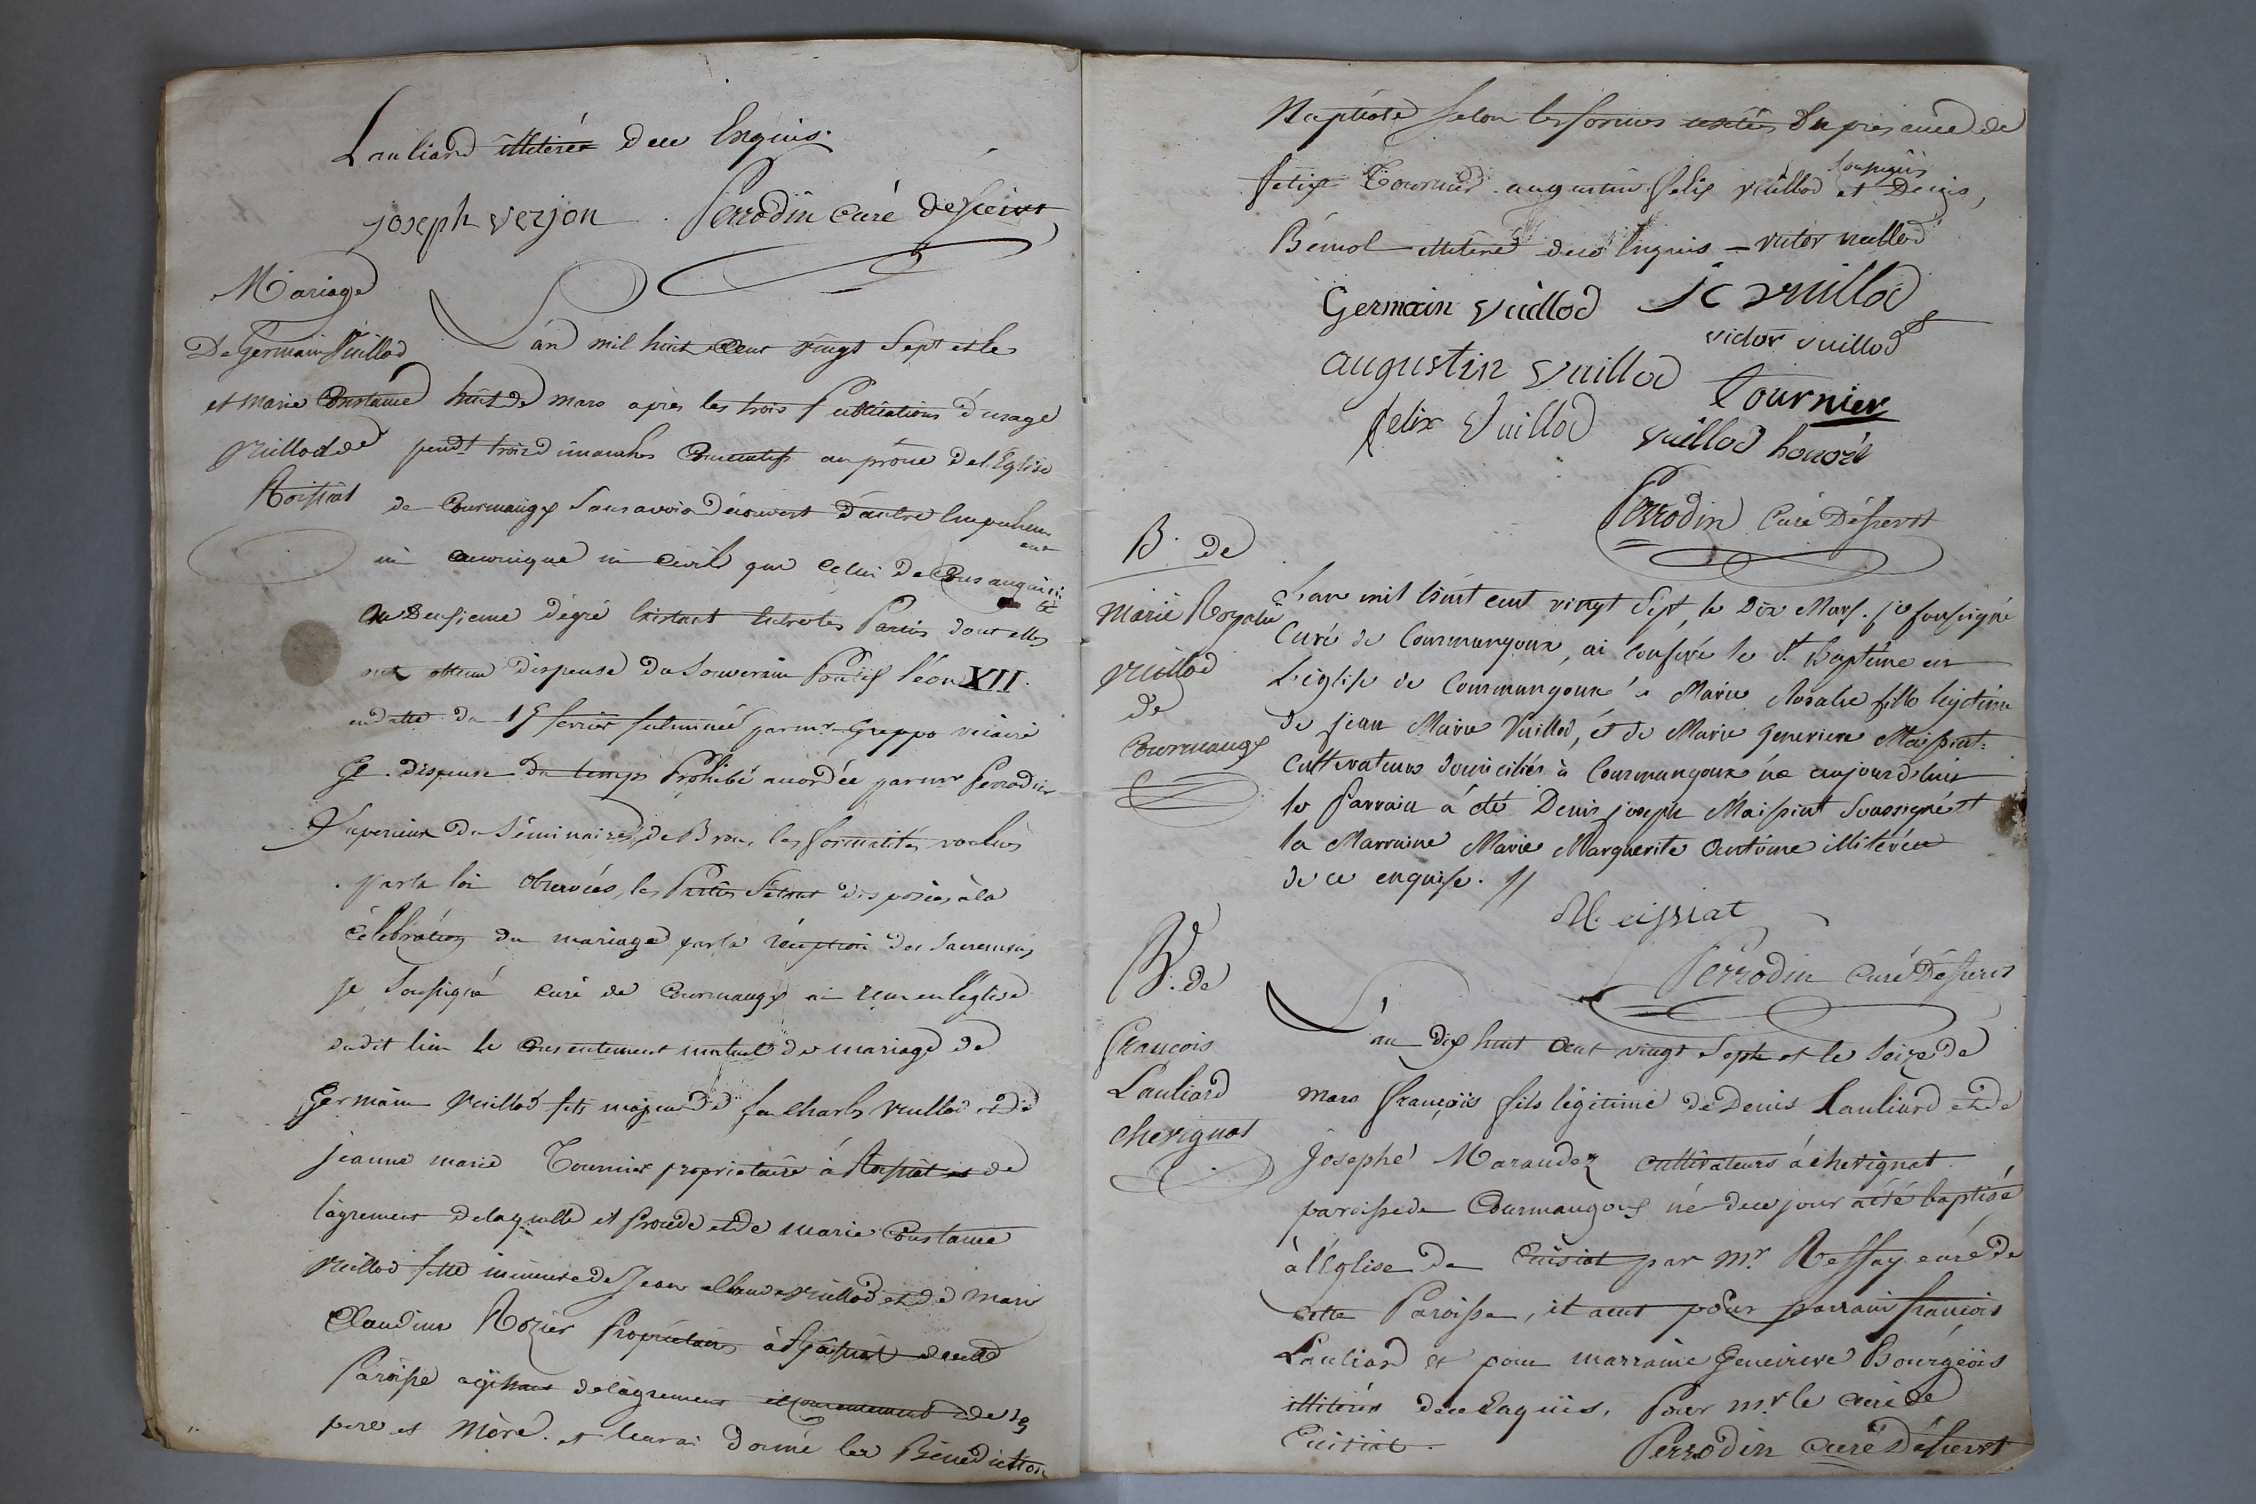 Lauliard illiteré dece Enquis.
joseph verjon Perrodin curé desserst
Mariage
De Germain Vuillod
et marie Constance
Vuillod de
Roissiat
L'an mil huit Cent vingt Sept et le
huit de mars après les trois Publications d'usage
pendt trois dimanches Consecutifs au prône de l'Eglise
de Courmangx Sans avoir Découvert d'autre Empechem
ent
ni canonique ni Civil que Celui de Consanguini
té
au Deusieme dégré Existant Entre les Parties dont elles
ont obtenu Dispense du Souverain Pontif léon XII.
en date du 15 fevrier fulminée par mr Greppo vicaire
Gl. dispense du temps Prohibé accordée par mr Perrodin
Superieur du Séminaire de Brou, les formalités voulues
par la loi observées, les Parties S'étant disposées à la
célébration du mariage par la réception des Sacremens
je Soussigné curé de Courmangx ai reçu en l'Eglise
dudit lieu le Consentement mutuel de mariage de
Germain Vuillod fils majeur de feu Charles Vuillod et de
jeanne marie Tournier propriétaire à Roissiat de
l'agrement de laquelle il Procède et de marie Constance
Vuillod fille mineure de Jean Claude Vuillod et de marie
Claudine Rozier Propriétaires à Roissiat de cette
Paroisse agissant de l'agrement et consentement de ses
pere et Mère. et leur ai donné les Bénédiction
Nuptiale Selon les formes usitées En présence de
felix Tournier augustin felix Vuillod et Denis,
soussignés
Bémol illiteré dece Enquis – victor vuillod
Germain Vuillod JC Vuillod
victor vuillod
augustin Vuillod Tournier
felix Vuillod Vuillod honoré
Perrodin Curé Désservt
B. de
Marie Rosalie
Vuillod
de
Courmangx
L'an mil huit cent vingt Sept, le Dix Mars. je soussigné
Curé de Courmangoux, ai conféré le St. Baptême en
L'église de Courmangoux à Marie Rosalie fille légitime
de jean Marie Vuillod, et de Marie Genevieve Maissiat.
Cultivateurs domiciliés à Courmangoux née aujourd'hui
le Parrain à été Denis joseph Maissiat Soussigné et
la Marraine Marie Marguerite Antoine illiterée
de ce enquise. //
Meissiat
Perrodin curé Désservt
B. de
François
Lauliard
chevignat
L'an dix huit cent vingt Sept et le Seize de
mars françois fils légitime de Denis Lauliard et de
Josephe Marandez cultivateurs à chevignat
paroisse de Courmangoux né dece jour a été baptisé
à l'Eglise de Cuisiat par Mr Reffay curé de
cette Paroisse, il a eut pour parrain françois
Lauliard et pour marraine Genevieve Bourgeois
illiterés dece Enquis. Pour mr le curé de
Cuisiat. Perrodin curé Désservt